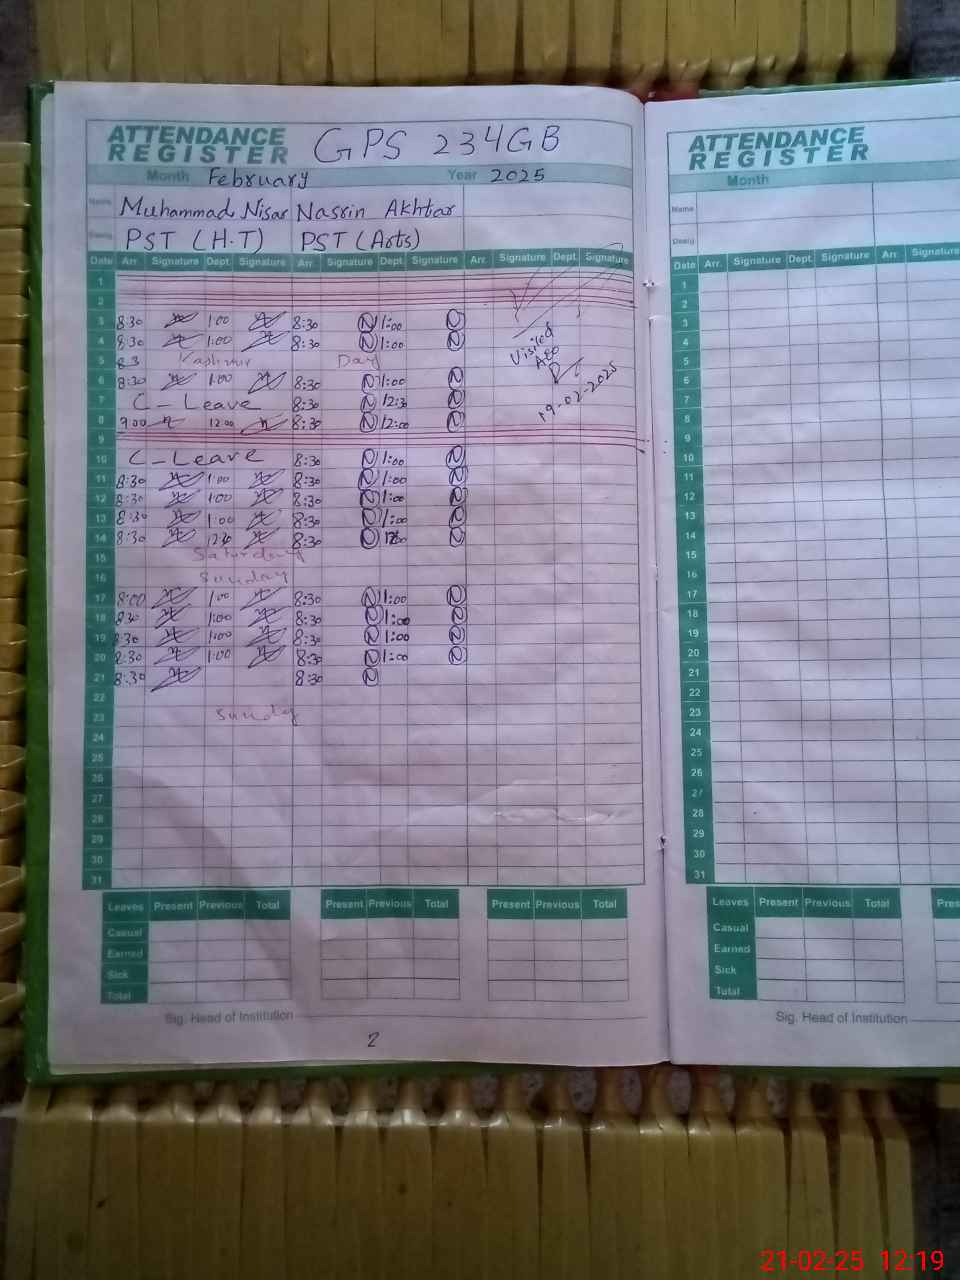 ATTENDANCE REGISTER GPS 234GB
Month February Year 2025
Name Muhammad Nisar Nasrin Akhtar
Desig PST (H.T) PST (Arts)
Date Arr. Signature Dept. Signature Arr. Signature Dept. Signature Arr. Signature Dept. Signature
1
2
3 8:30 1:00 8:30 N 1:00 N
4 8:30 1:00 8:30 N 1:00 N
5 83 Kashmir Day
6 8:30 1:00 8:30 N 1:00 N
7 C-Leave 8:30 N 12:30 N
8 9:00 12:00 8:30 N 12:00 N
Visited
AEO
19-02-2025
9
10 C-Leave 8:30 N 1:00 N
11 8:30 1:00 8:30 N 1:00 N
12 8:30 1:00 8:30 N 1:00 N
13 8:30 1:00 8:30 N 1:00 N
14 8:30 12:30 8:30 N N
15 Saturday
16 Sunday
17 8:00 1:00 8:30 N 1:00 N
18 8:30 1:00 8:30 N 1:00 N
19 8:30 1:00 8:30 N 1:00 N
20 8:30 1:00 8:30 N 1:00 N
21 8:30 8:30 N
22
23 Sunday
24
25
26
27
28
29
30
31
Leaves Present Previous Total Present Previous Total Present Previous Total
Casual
Earned
Sick
Total
Sig. Head of Institution
2
ATTENDANCE REGISTER
Month
Name
Desig
Date Arr. Signature Dept. Signature Arr. Signature
1
2
3
4
5
6
7
8
9
10
11
12
13
14
15
16
17
18
19
20
21
22
23
24
25
26
27
28
29
30
31
Leaves Present Previous Total Pres
Casual
Earned
Sick
Total
Sig. Head of Institution
21-02-25 12:19